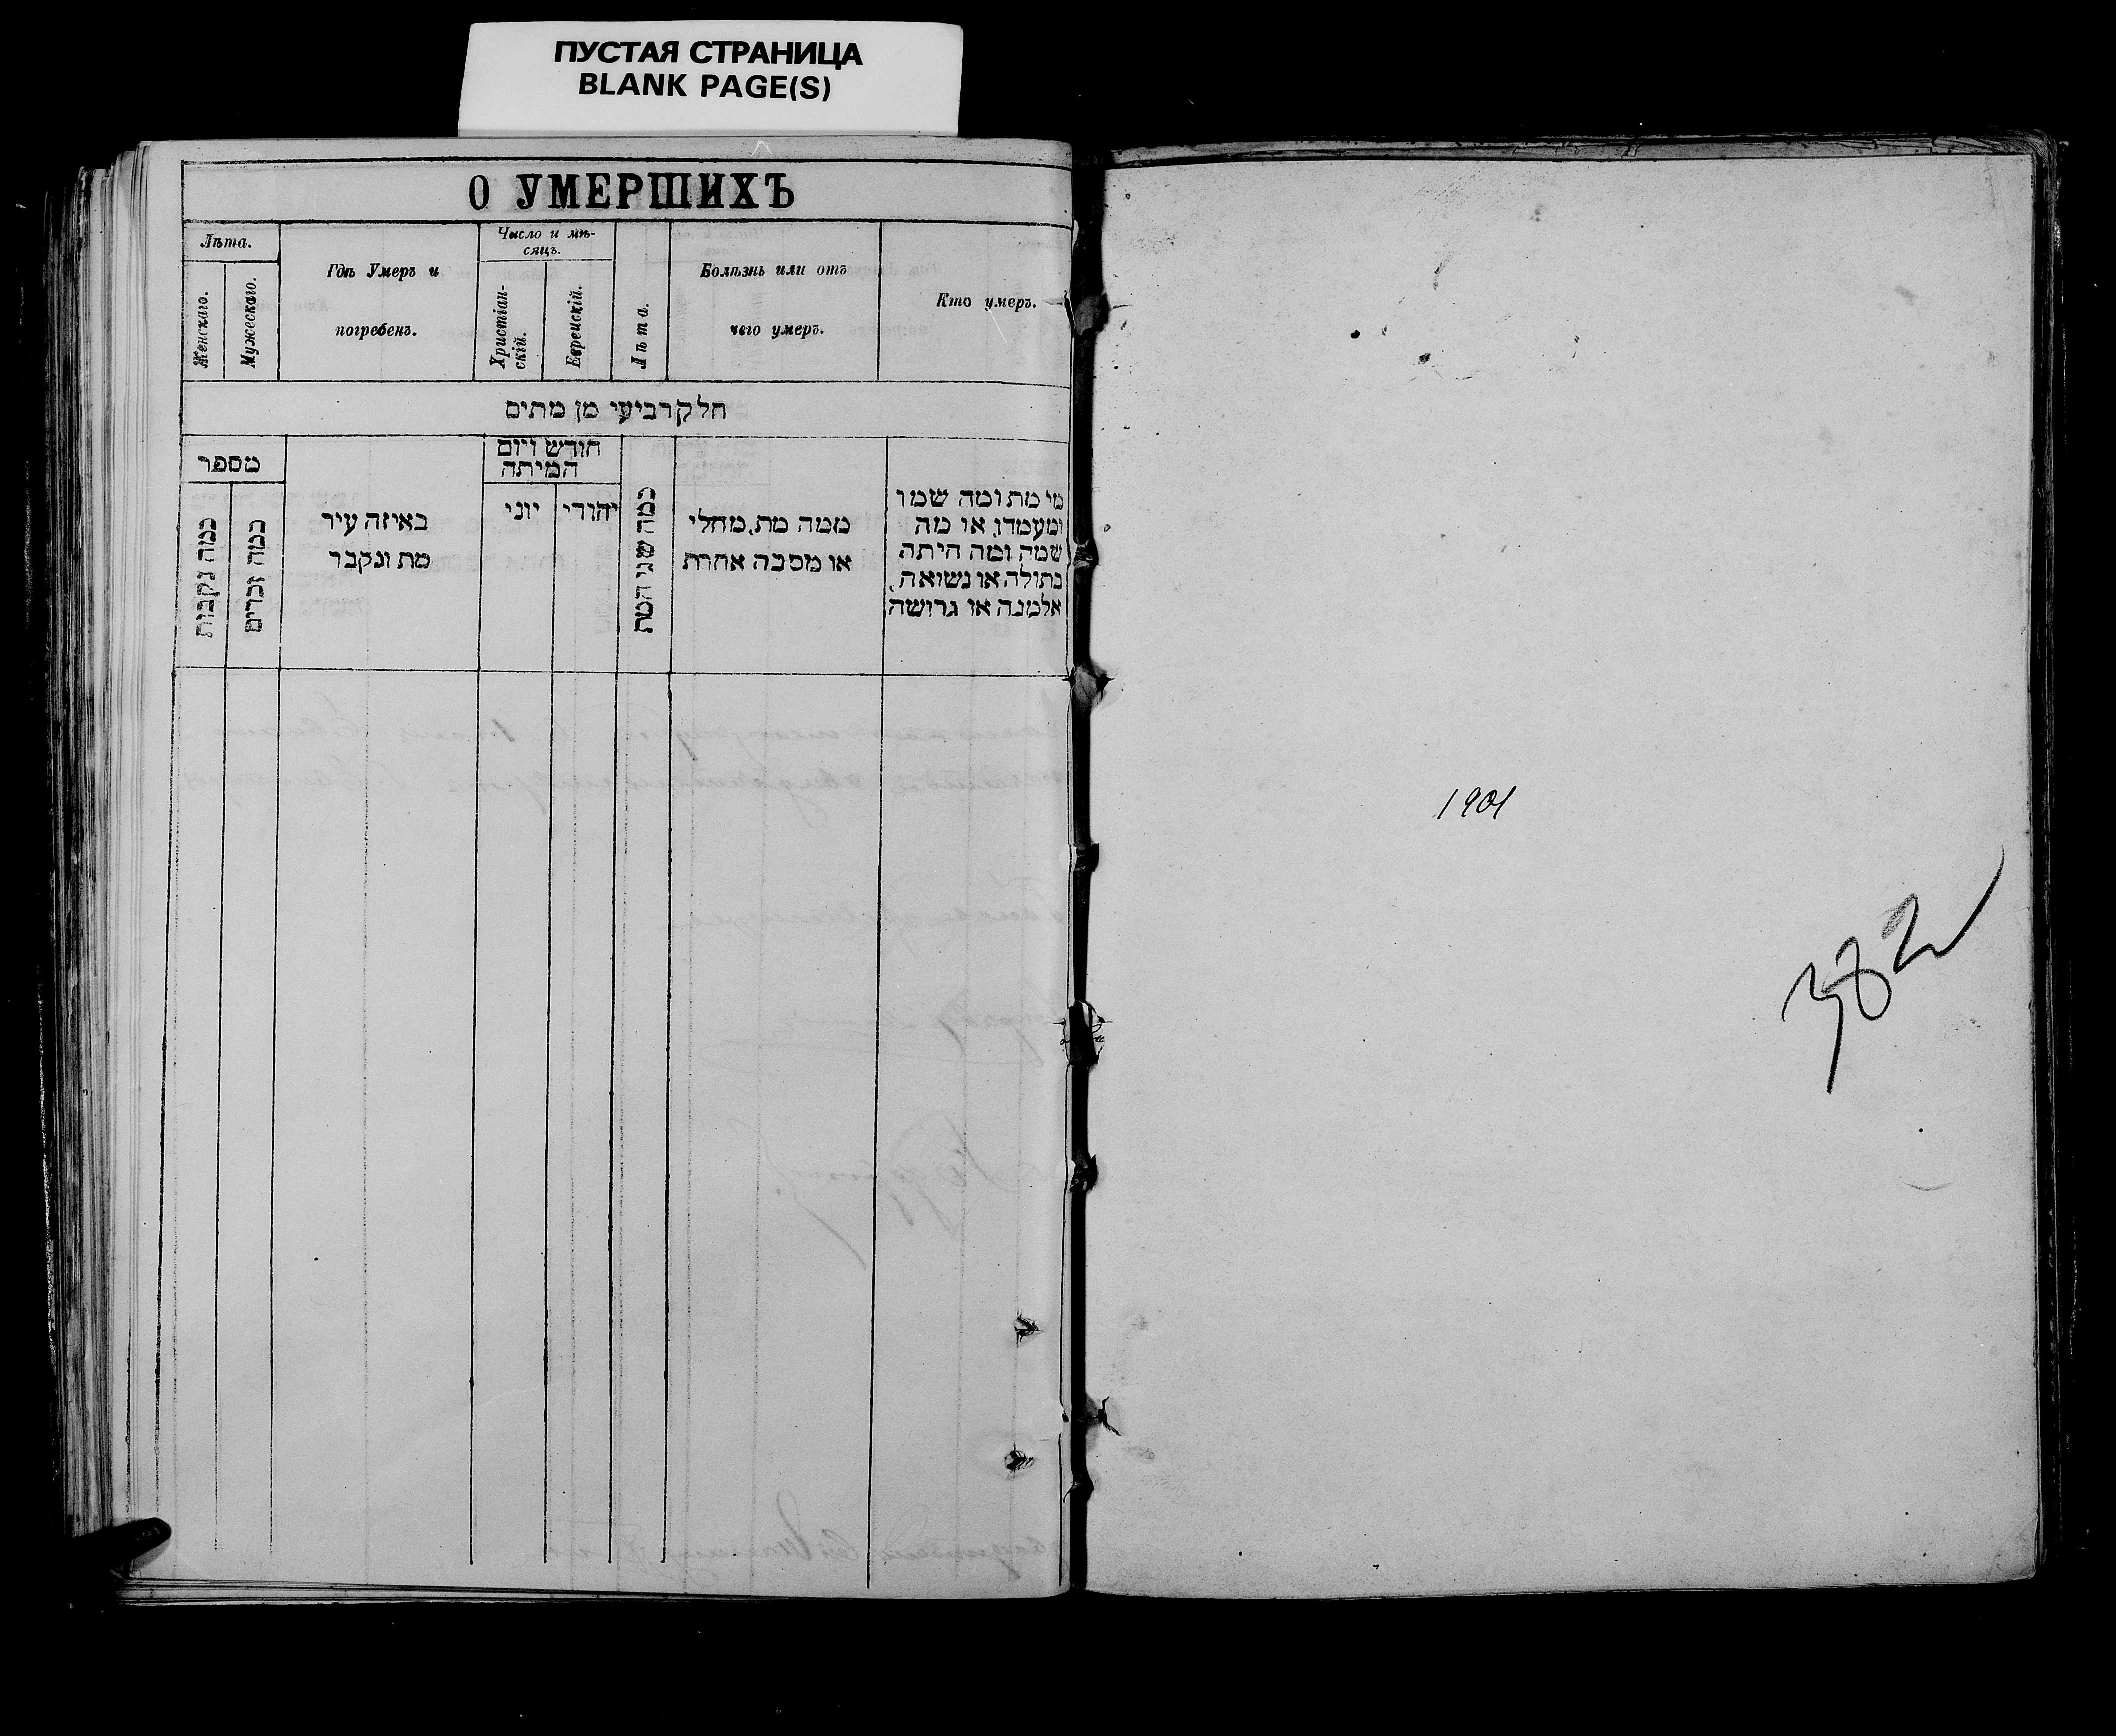 ПУСТАЯ СТРАНИЦА
BLANK PAGE(S)
О УМЕРШИХЪ
Лѣта.
Женскаго.
Мужескаго.
Гдѣ Умеръ и
погребенъ.
Число и мѣ-
сяцъ.
Христіан-
скій.
Еврейскій.
Лѣта.
Болѣзнь или отъ
чего умеръ.
Кто умеръ.
חלק רביעי מן מתים
מי מת ומה שמו
ומעמדו, או מה
שמה ומה היתה
בתולה או נשואה,
אלמנה או גרושה
ממה מת, מחלי
או מסבה אחרת
כמה שני המת
חודש ויום
המיתה
יהודי
יוני
באיזה עיר
מת ונקבר
מספר
כמה זכרים
כמה נקבות
1901
382